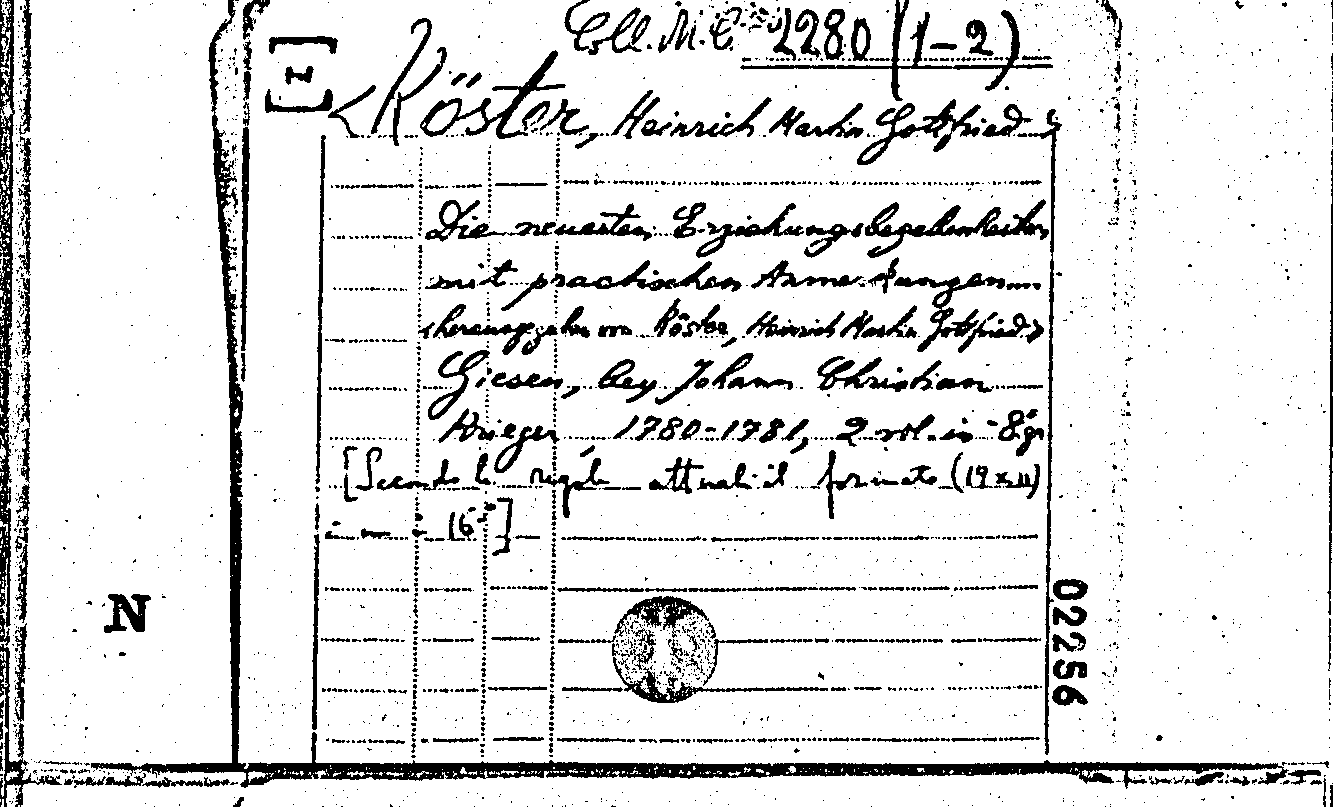 Coll. M.C. 2280 (1-2)
[I]
<Röster, Heinrich Martin Gottfried>
Die neuesten Erziehungsbegebenheiten
mit practischen Anmerkungen...
<herausgegeben von Röster, Heinrich Martin Gottfried>
Giesen, bey Johann Christian
Krieger, 1780-1781, 2 vol. in -8°gr
[Secondo le regole attuali il formato (19 x 11)
è in 16°]
N
02256